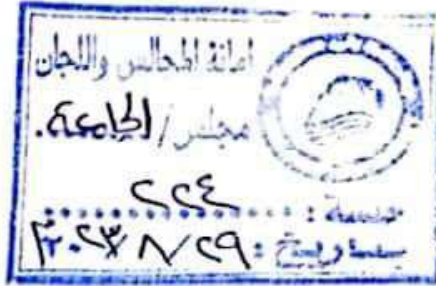 امانة المجالس واللجان
مجلس / الجامعة.
جلسة : ٢٢٤
بتاريخ : ٢٩ / ٨ / ٢٠٢٣م